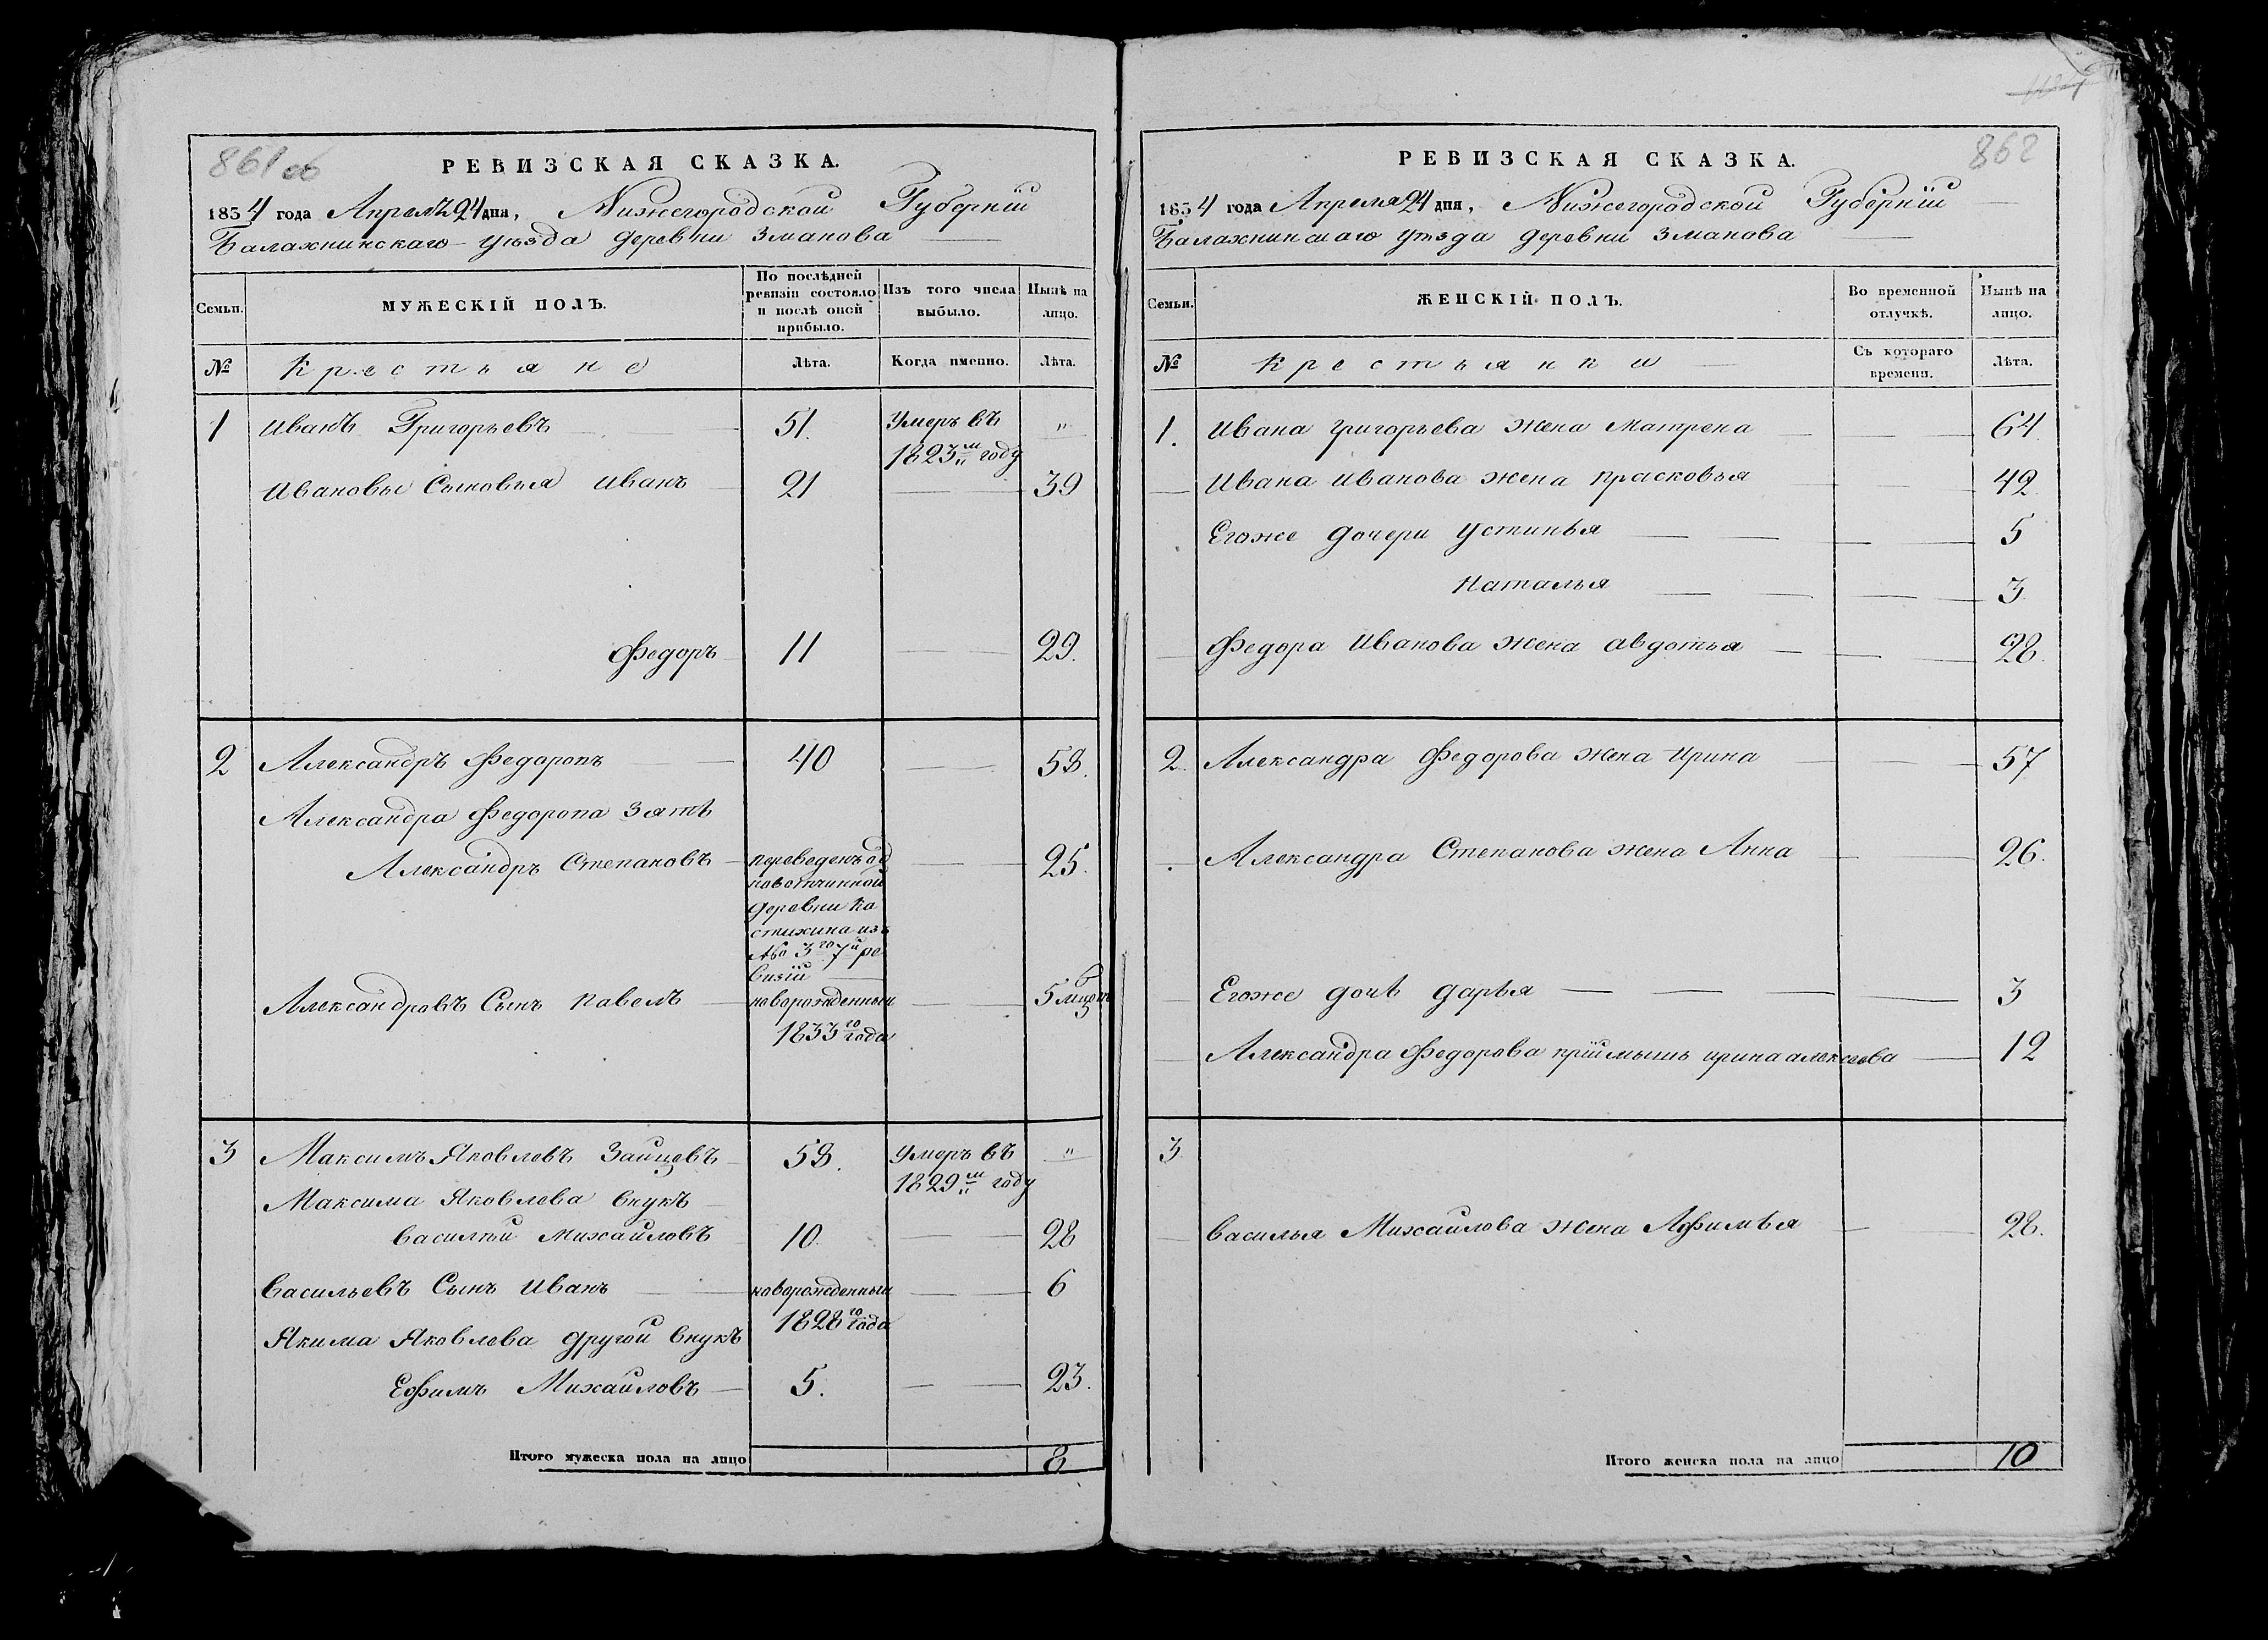 861 об
РЕВИЗСКАЯ СКАЗКА.
1834 года Апреля 24 дня, Нижегородской Губернiи
Балахнинскаго уезда деревни Зманова
Семьи.
МУЖЕСКIЙ ПОЛЪ.
По послѣдней ревизiи состояло и послѣ оной прибыло.
Изъ того числа выбыло.
Нынѣ на лицо.
№
Крестьяне
Лѣта.
Когда именно.
Лѣта.
1 Иванъ Григорьевъ 51. Умеръ въ "
1823 м году
Ивановы Сыновья Иванъ 21 39
Федоръ 11 29.
2 Александръ Федоровъ 40 58.
Александра Федорова Зять
Александръ Степановъ переведенъ од 25.
новотчинной
деревни Ка
стихина изъ
№ 3го 7й ре
визiи
Александровъ Сынъ Павелъ новорожденный 5 мцовъ
1833го года
3 Максимъ Яковлевъ Зайцевъ 58. Умеръ въ "
1829 м году
Максима Яковлева внукъ
Василѣй Михайловъ 10. 28
Васильевъ Сынъ Иванъ новорожденный 6
1828го года
Якима Яковлева другой внукъ
Ефимъ Михайловъ 5. 23.
Итого мужеска пола на лицо 8
862
РЕВИЗСКАЯ СКАЗКА.
1834 года Апреля 24 дня, Нижегородской Губернiи
Балахнинскаго уѣзда деревни Зманова
Семьи.
ЖЕНСКIЙ ПОЛЪ.
Во временной отлучкѣ.
Нынѣ на лицо.
№
Крестьянки
Съ котораго времени.
Лѣта.
1. Ивана Григорьева жена Матрена 64.
Ивана Иванова жена Прасковья 42.
Егоже дочери Устинья 5
Наталья 3
Федора Иванова жена Авдотья 28.
2. Александра Федорова жена Ирина 57
Александра Степанова жена Анна 26.
Егоже дочь Дарья 3
Александра Федорова прiимышъ Ирина Алексеева 12
3.
Василья Михайлова жена Афимья 28.
Итого женска пола на лицо 10